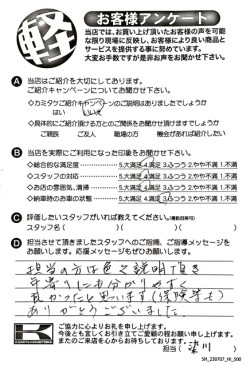 軽
お客様アンケート
当店では、お買い上げ頂いたお客様の声を可能
な限り現場に反映し、お客様により良い商品と
サービスを提供する事に努めています。
大変お手数ですが是非お声をお聞かせ下さい。
A 当店はご紹介を大切にしております。
ご紹介キャンペーンについてお聞かせ下さい。
◇カミタケご紹介キャンペーンのご説明はありましたでしょうか
はい いいえ
◇具体的にご紹介頂ける方とのご関係をお聞かせ頂けますでしょうか
ご親族 ご友人 職場の方 機会があれば紹介したい
B 当店を実際にご利用になった印象をお聞かせ下さい。
◇総合的な満足度 5.大満足 4.満足 3.ふつう 2.やや不満 1.不満
◇スタッフの対応 5.大満足 4.満足 3.ふつう 2.やや不満 1.不満
◇お店の雰囲気、清掃 5.大満足 4.満足 3.ふつう 2.やや不満 1.不満
◇納車時のお車の状態 5.大満足 4.満足 3.ふつう 2.やや不満 1.不満
C 評価したいスタッフがいれば教えてください。(複数回答可)
スタッフ名( )( )( )
D 担当させて頂きましたスタッフへのご指摘、ご指導メッセージを
お願いします。応援メッセージもぜひお願いします。
担当の方は色々説明頂き
年寄りにも分かりやすく
良かったと思います(保険等も)
ありがとうございました。
ご協力に心よりお礼を申し上げます。
今後とも宜しくお引き立てご愛顧の程お願い申し上げます。
またのご来店を心からお待ちしております。
担当( )
SH_230707_HI_500